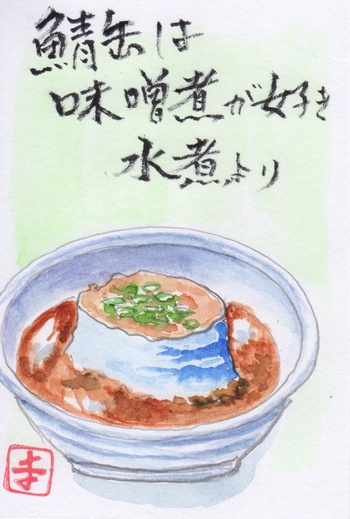 鯖缶は
味噌煮が好き
水煮より
ま